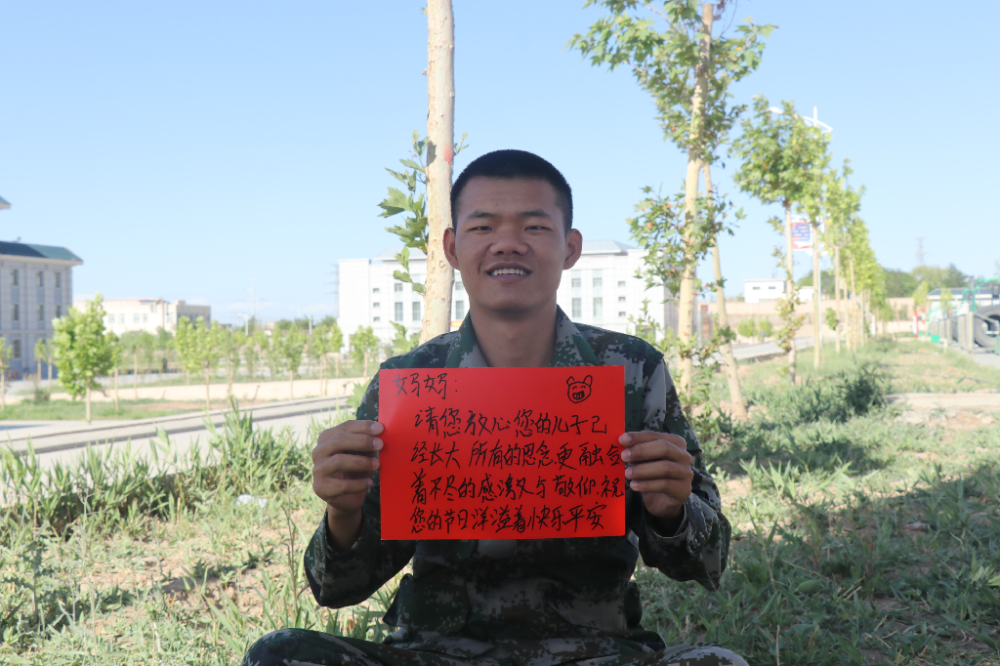 妈妈：
请您放心您的儿子已
经长大 所有的思念更融会
着不尽的感激与敬仰.祝
您的节日洋溢着快乐平安